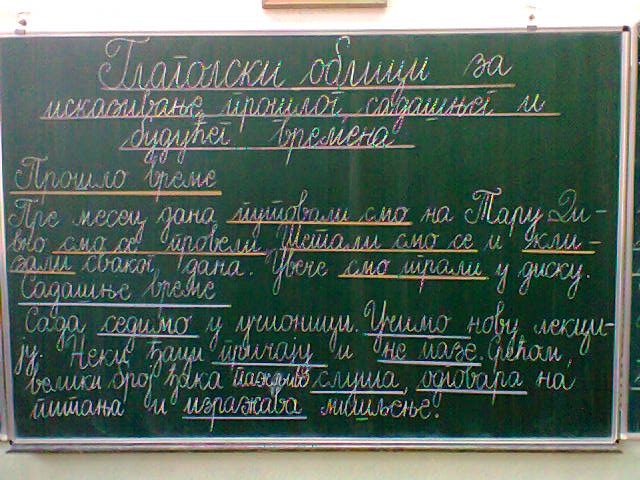 Глаголски облици за
исказивање прошлог, садашњег и
будућег времена
Прошло време
Пре месец дана путовали смо на Тару. Ди-
вно смо се провели. Шетали смо се и кли-
зали сваког дана. Увече смо играли у диску.
Садашње време
Сада седимо у учионици. Учимо нову лекци-
ју. Неки ђаци причају и не пазе. Срећом,
велики број ђака пажљиво слуша, одговара на
питања и изражава мишљење.